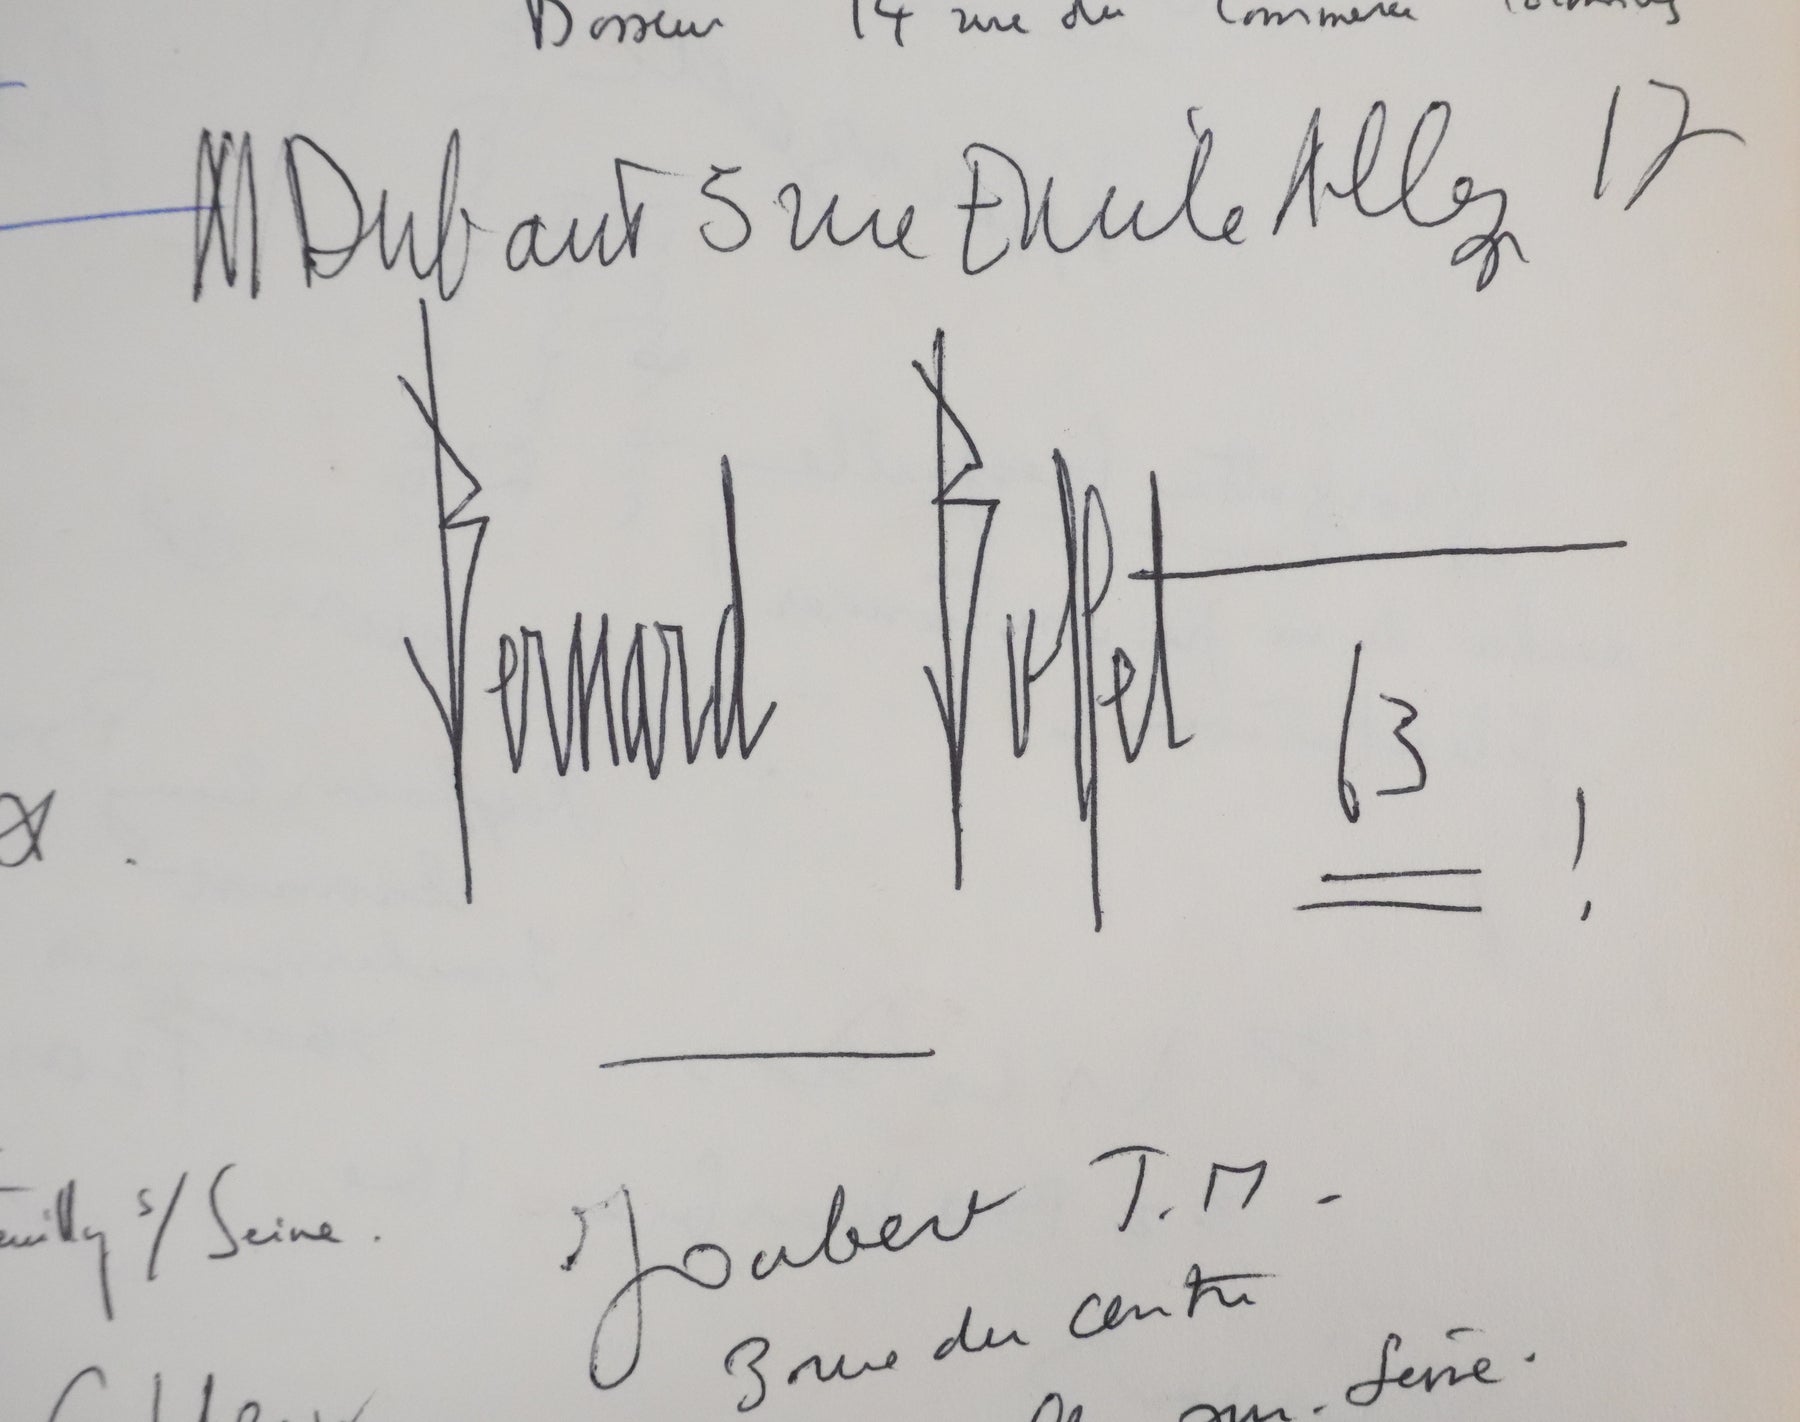 Dosseur 14 rue du Commerce
M Dubaut 5 rue Emile Allez 17
Bernard Buffet
63 !
s/ Seine.
Joubert J.M -
3 rue du centre
sur. Seine.